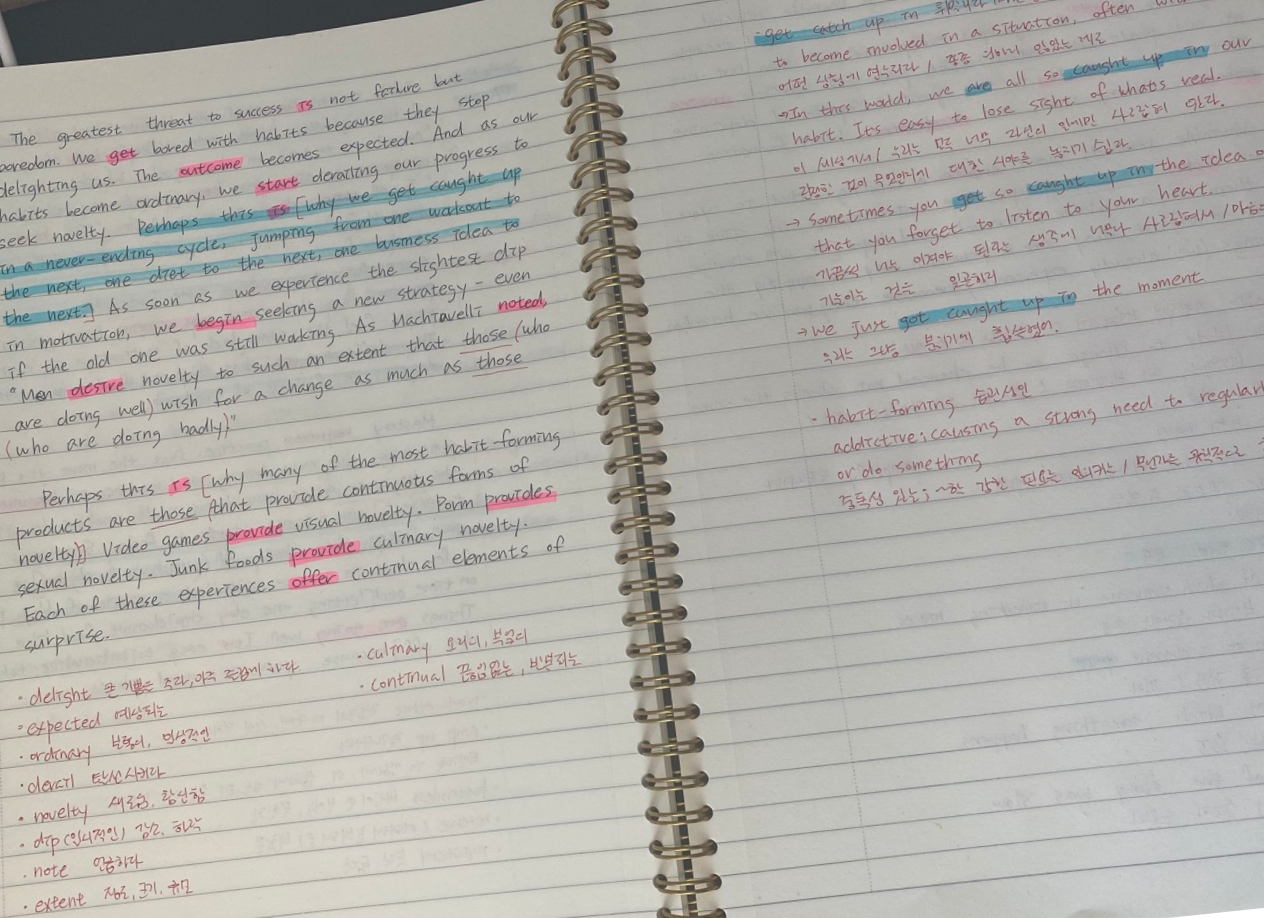 The greatest threat to success is not failure but
boredom. We get bored with habits because they stop
delighting us. The outcome becomes expected. And as our
habits become ordinary, we start derailing our progress to
seek novelty. Perhaps this is [why we get caught up
in a never-ending cycle, jumping from one walkout to
the next, one diet to the next, one business idea to
the next.] As soon as we experience the slightest dip
in motivation, we begin seeking a new strategy - even
if the old one was still walking. As Machiavelli noted,
"Men desire novelty to such an extent that those (who
are doing well) wish for a change as much as those
(who are doing badly)"
Perhaps this is [why many of the most habit-forming
products are those (that provide continuous forms of
novelty)] Video games provide visual novelty. Porm provides
sexual novelty. Junk foods provide culinary novelty.
Each of these experiences offer continual elements of
surprise.
· delight 큰 기쁨을 주다, 아주 즐겁게 하다
· expected 예상되는
· ordinary 보통의, 일상적인
· derail 탈선시키다
· novelty 새로움, 참신함
· dip (일시적인) 감소, 하락
· note 언급하다
· extent 정도, 크기, 규모
· culinary 요리의, 부엌의
· continual 끊임없는, 반복되는
· get catch up in
to become involved in a situation, often
어떤 상황에 연루되다 / 종종 의도치 않았는
→ In this world, we are all so caught up in our
habit. Its easy to lose sight of whats real.
이 세상에서 / 우리는 모두 너무 자신의 안에만 사로잡혀 있다.
진정한 것이 무엇인지에 대한 시야를 놓치기 쉽다
→ sometimes you get so caught up in the idea
that you forget to listen to your heart.
가끔씩 너는 이겨야 된다는 생각에 너무나 사로잡혀서 /
기울이는 것을 잊곤하지
→ we just got caught up in the moment
우리는 그냥 분위기에 휩쓸렸어.
- habit-forming 습관성인
addictive; causing a strong need to regular
or do something
중독성 있는; ~한 강한 필요를 일으키는 /